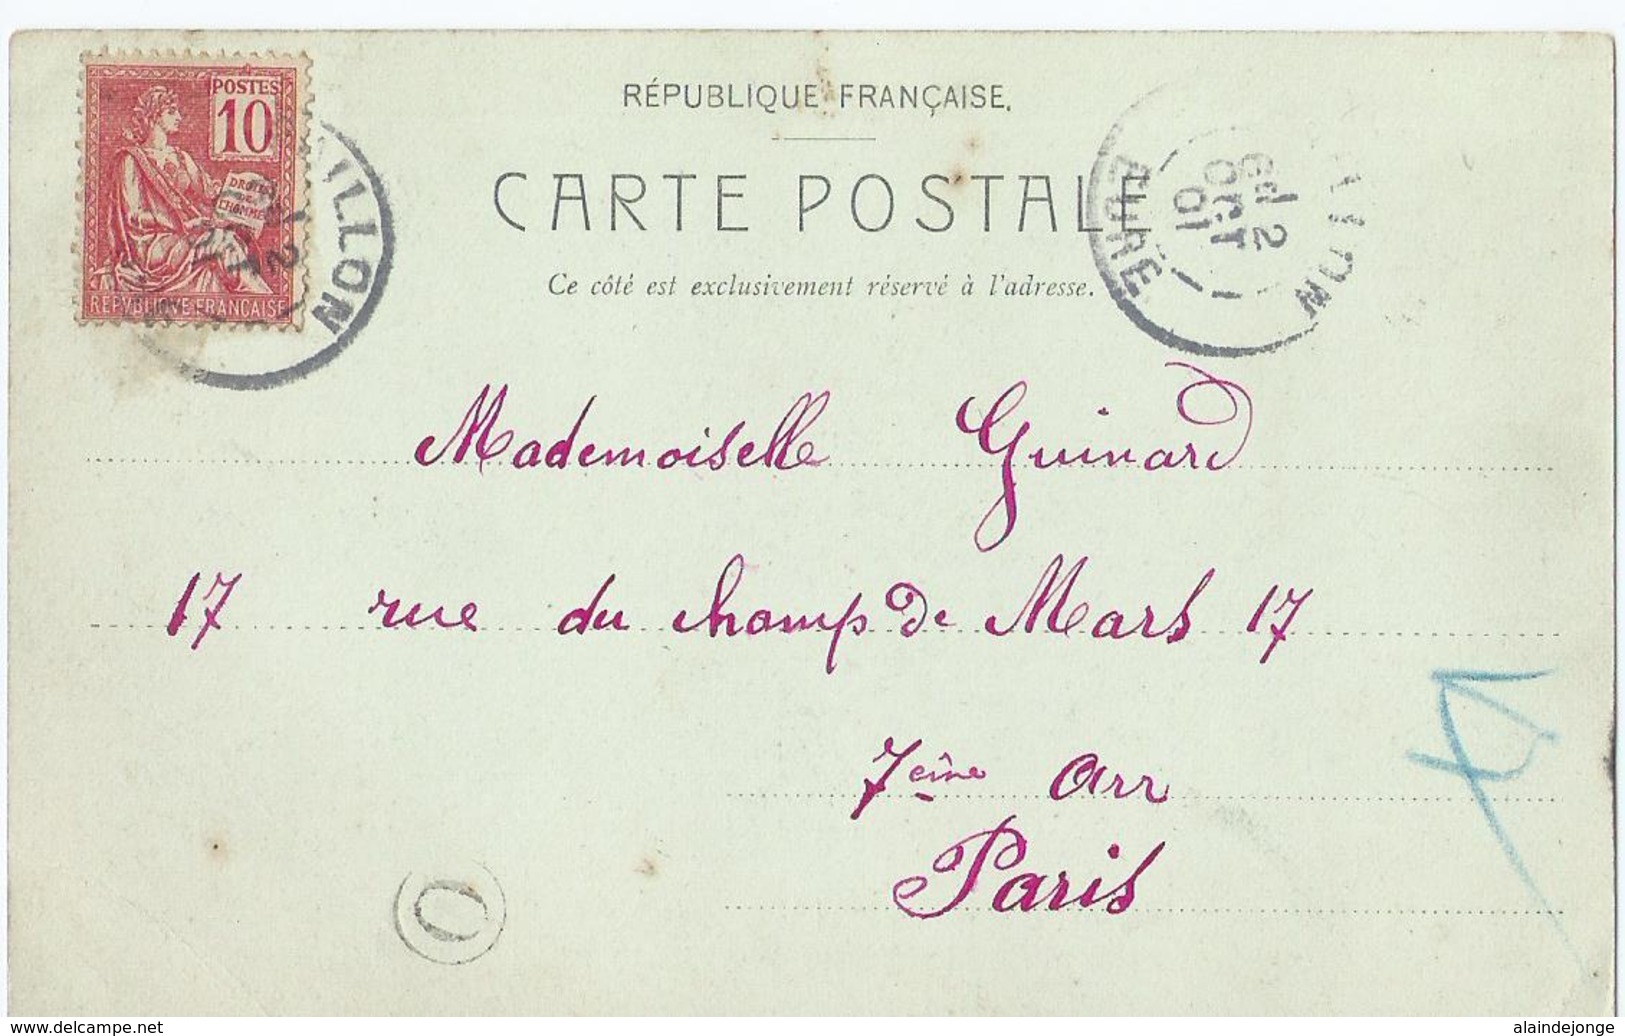 POSTES
10
DROITS
DE
L'HOMME
REPVBLIQVE FRANÇAISE
ILLON
2
OCT
01
RÉPUBLIQUE FRANÇAISE.
CARTE POSTALE
Ce côté est exclusivement réservé à l'adresse.
EURE
2
OCT
01
Mademoiselle Guinard
17 rue du champ de Mars 17
7eme arr
Paris
O
www.delcampe.net
alaindejonge